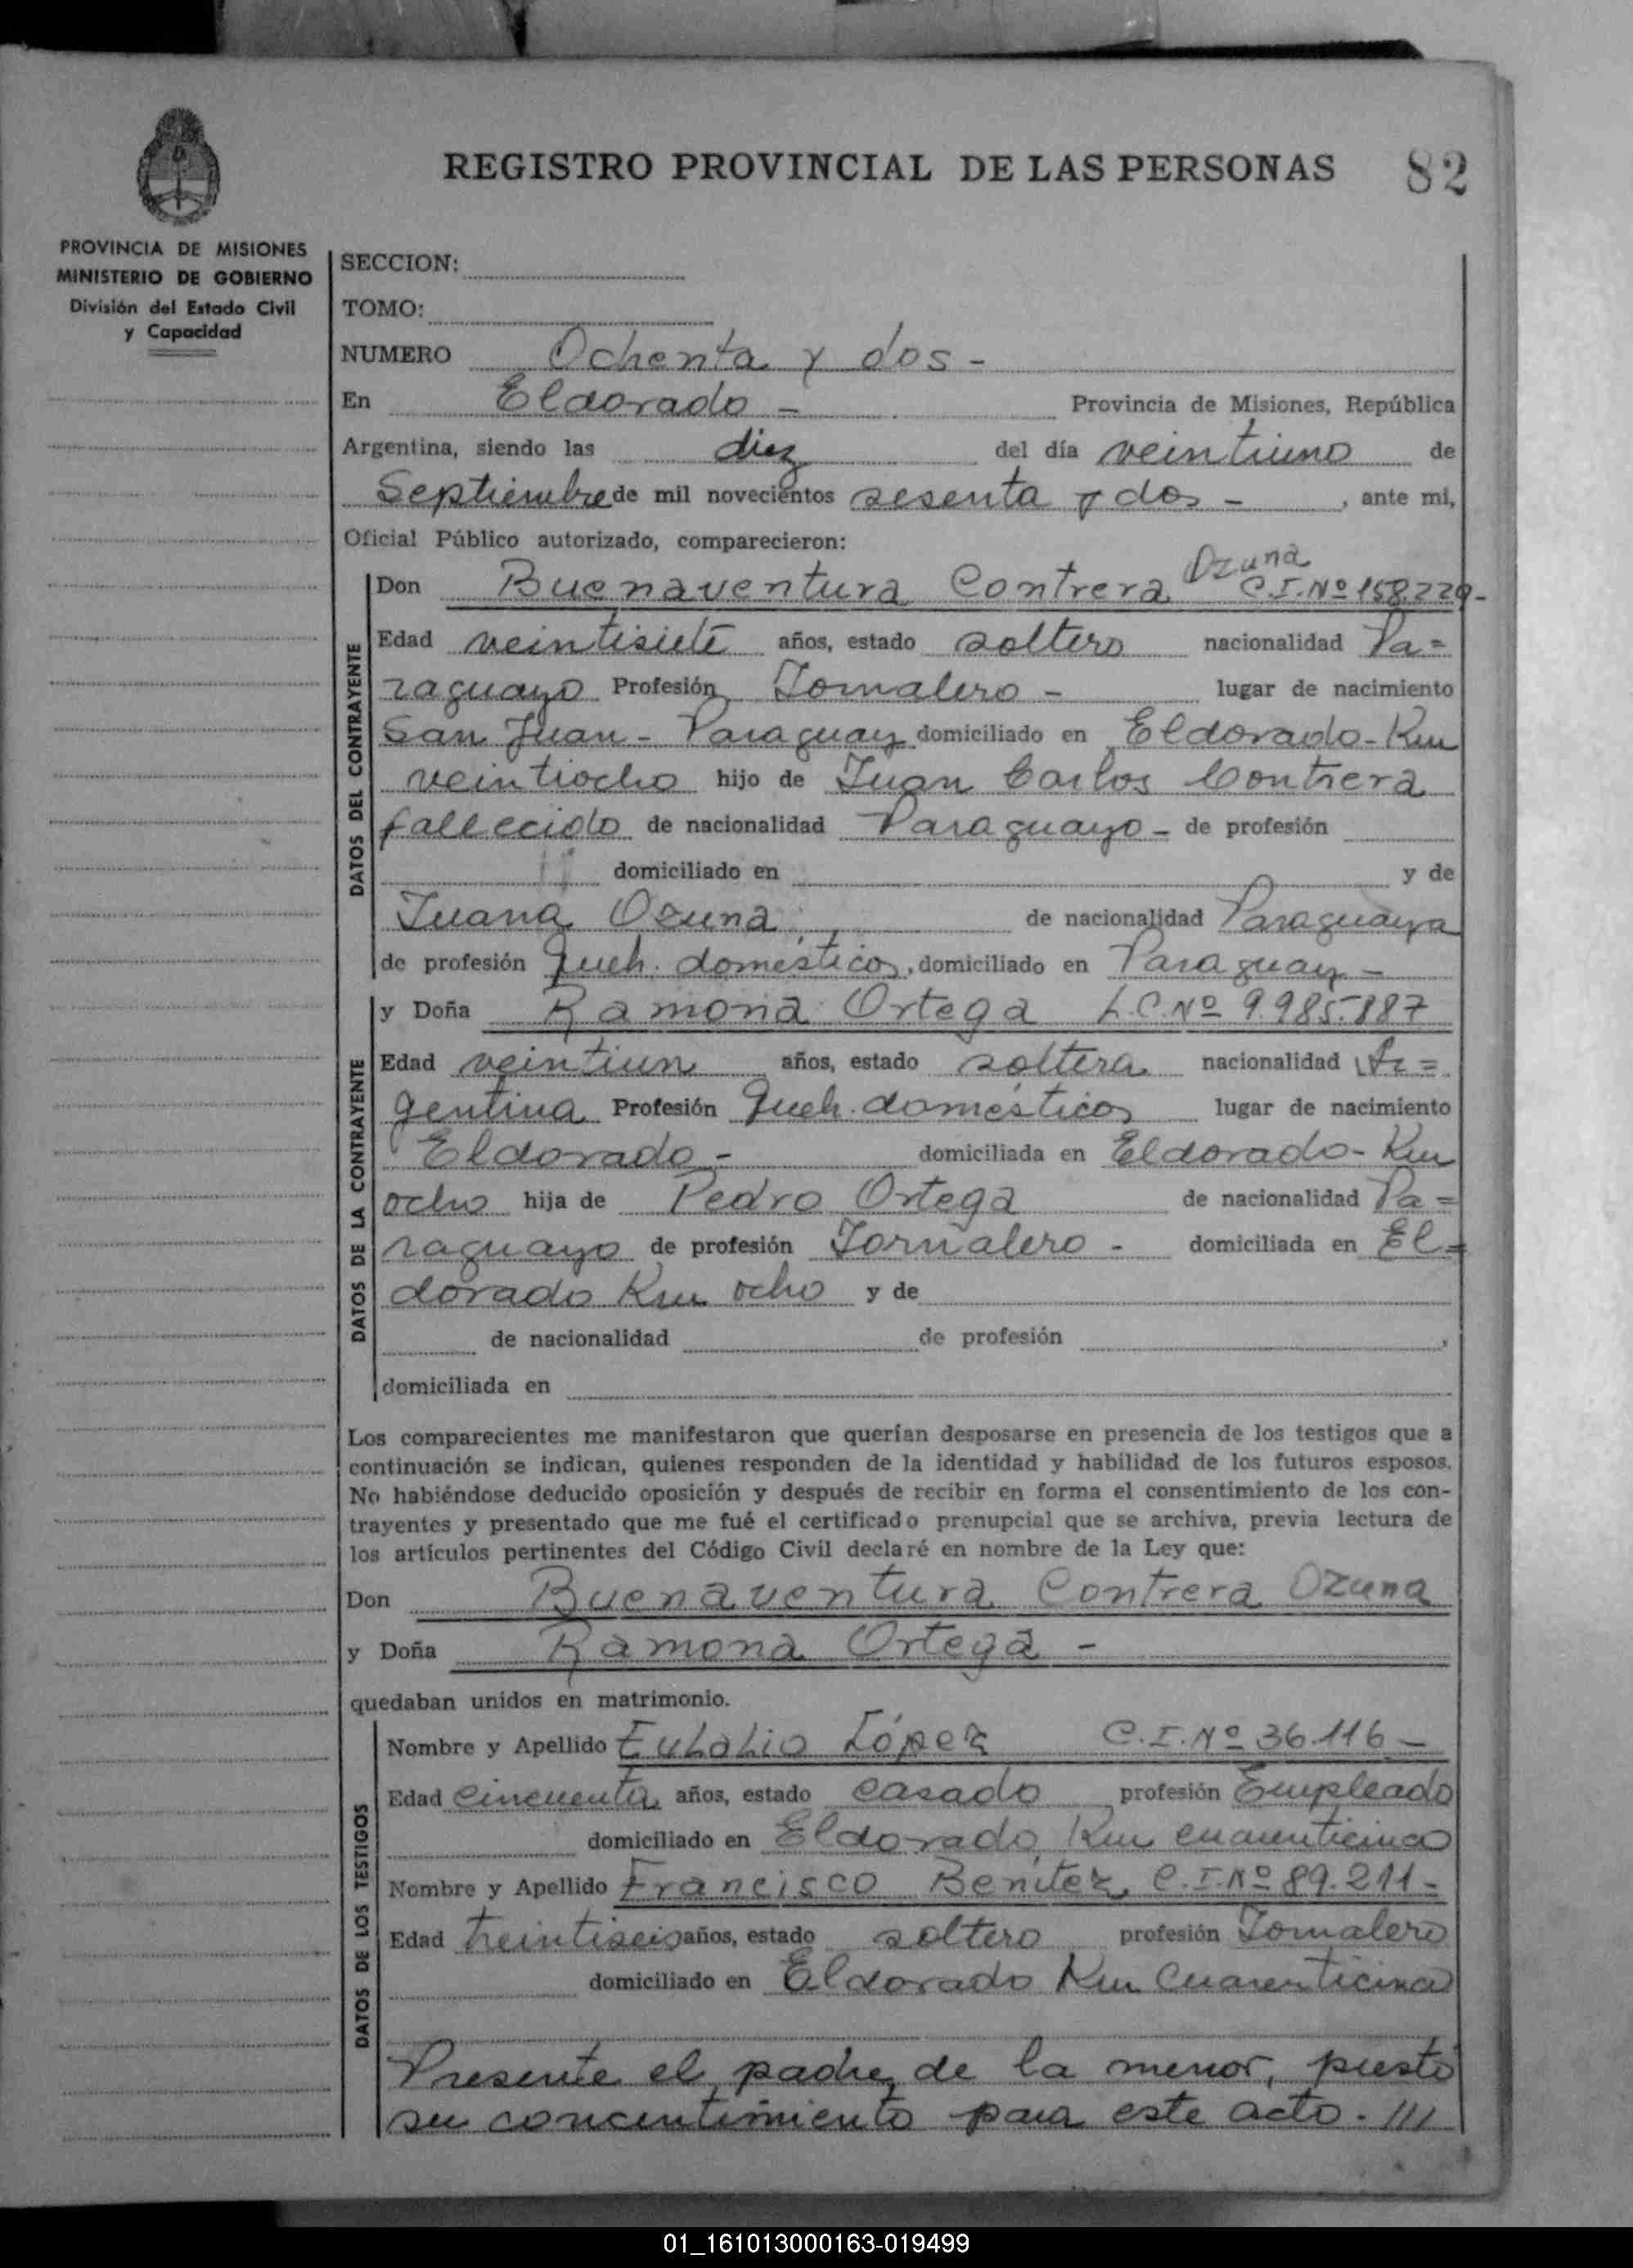 REGISTRO PROVINCIAL DE LAS PERSONAS 82
PROVINCIA DE MISIONES
MINISTERIO DE GOBIERNO
División del Estado Civil
y Capacidad
SECCION:
TOMO:
NUMERO Ochenta y dos -
En Eldorado - Provincia de Misiones, República
Argentina, siendo las diez del día veintiuno de
Septiembre de mil novecientos sesenta y dos - , ante mi,
Oficial Público autorizado, comparecieron:
Ozuna
Don Buenaventura Contrera C.I. Nº 158.229-
DATOS DEL CONTRAYENTE
Edad veintisiete años, estado soltero nacionalidad Pa=
raguayo Profesión Jornalero - lugar de nacimiento
San Juan - Paraguay domiciliado en Eldorado - Km
veintiocho hijo de Juan Carlos Contrera
fallecido de nacionalidad Paraguayo - de profesión
domiciliado en y de
Juana Ozuna de nacionalidad Paraguaya
de profesión Queh. domésticos, domiciliado en Paraguay -
y Doña Ramona Ortega L.C. Nº 9.985.887
DATOS DE LA CONTRAYENTE
Edad veintiun años, estado soltera nacionalidad Ar=
gentina Profesión Queh. domésticos lugar de nacimiento
Eldorado - domiciliada en Eldorado - Km
ocho hija de Pedro Ortega de nacionalidad Pa=
raguayo de profesión Jornalero - domiciliada en El=
dorado Km ocho y de
de nacionalidad de profesión ,
domiciliada en
Los comparecientes me manifestaron que querían desposarse en presencia de los testigos que a
continuación se indican, quienes responden de la identidad y habilidad de los futuros esposos.
No habiéndose deducido oposición y después de recibir en forma el consentimiento de los con-
trayentes y presentado que me fué el certificado prenupcial que se archiva, previa lectura de
los artículos pertinentes del Código Civil declaré en nombre de la Ley que:
Don Buenaventura Contrera Ozuna
y Doña Ramona Ortega -
quedaban unidos en matrimonio.
DATOS DE LOS TESTIGOS
Nombre y Apellido Eulalio López C.I. Nº 36.116 -
Edad cincuenta años, estado casado profesión Empleado
domiciliado en Eldorado Km cuarenticinco
Nombre y Apellido Francisco Benitez C.I. Nº 89.211 -
Edad treintiseis años, estado soltero profesión Jornalero
domiciliado en Eldorado Km cuarenticinco
Presente el padre de la menor, prestó
su concentimiento para este acto. ///
01_161013000163-019499